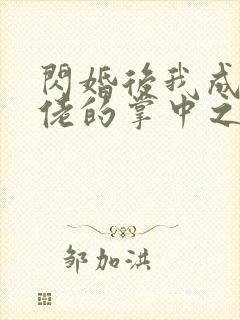 閃婚後我成
佬的掌中之
邹加洪